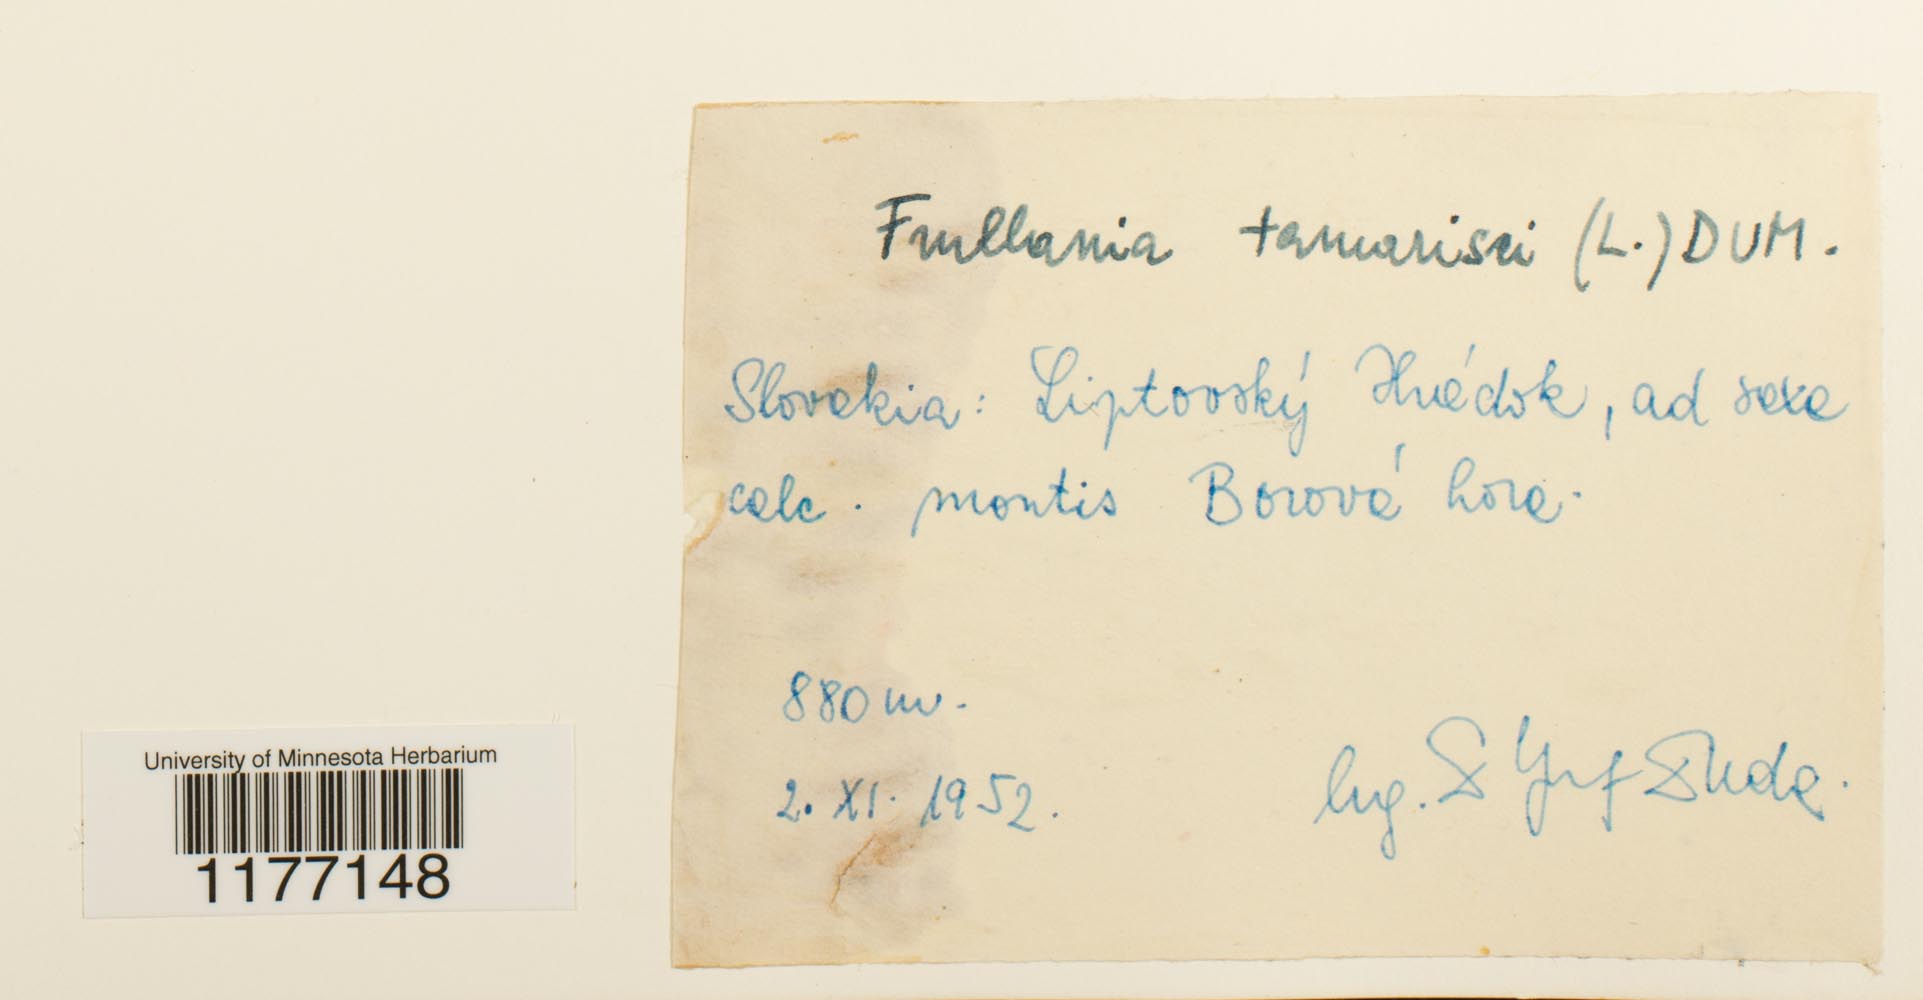 Frullania tamarisci (L.) DUM.
Slovakia: Liptovský Hrádok, ad saxa
calc. montis Borová hora.
880 m.
2. XI. 1952.
leg. Duda.
University of Minnesota Herbarium
1177148